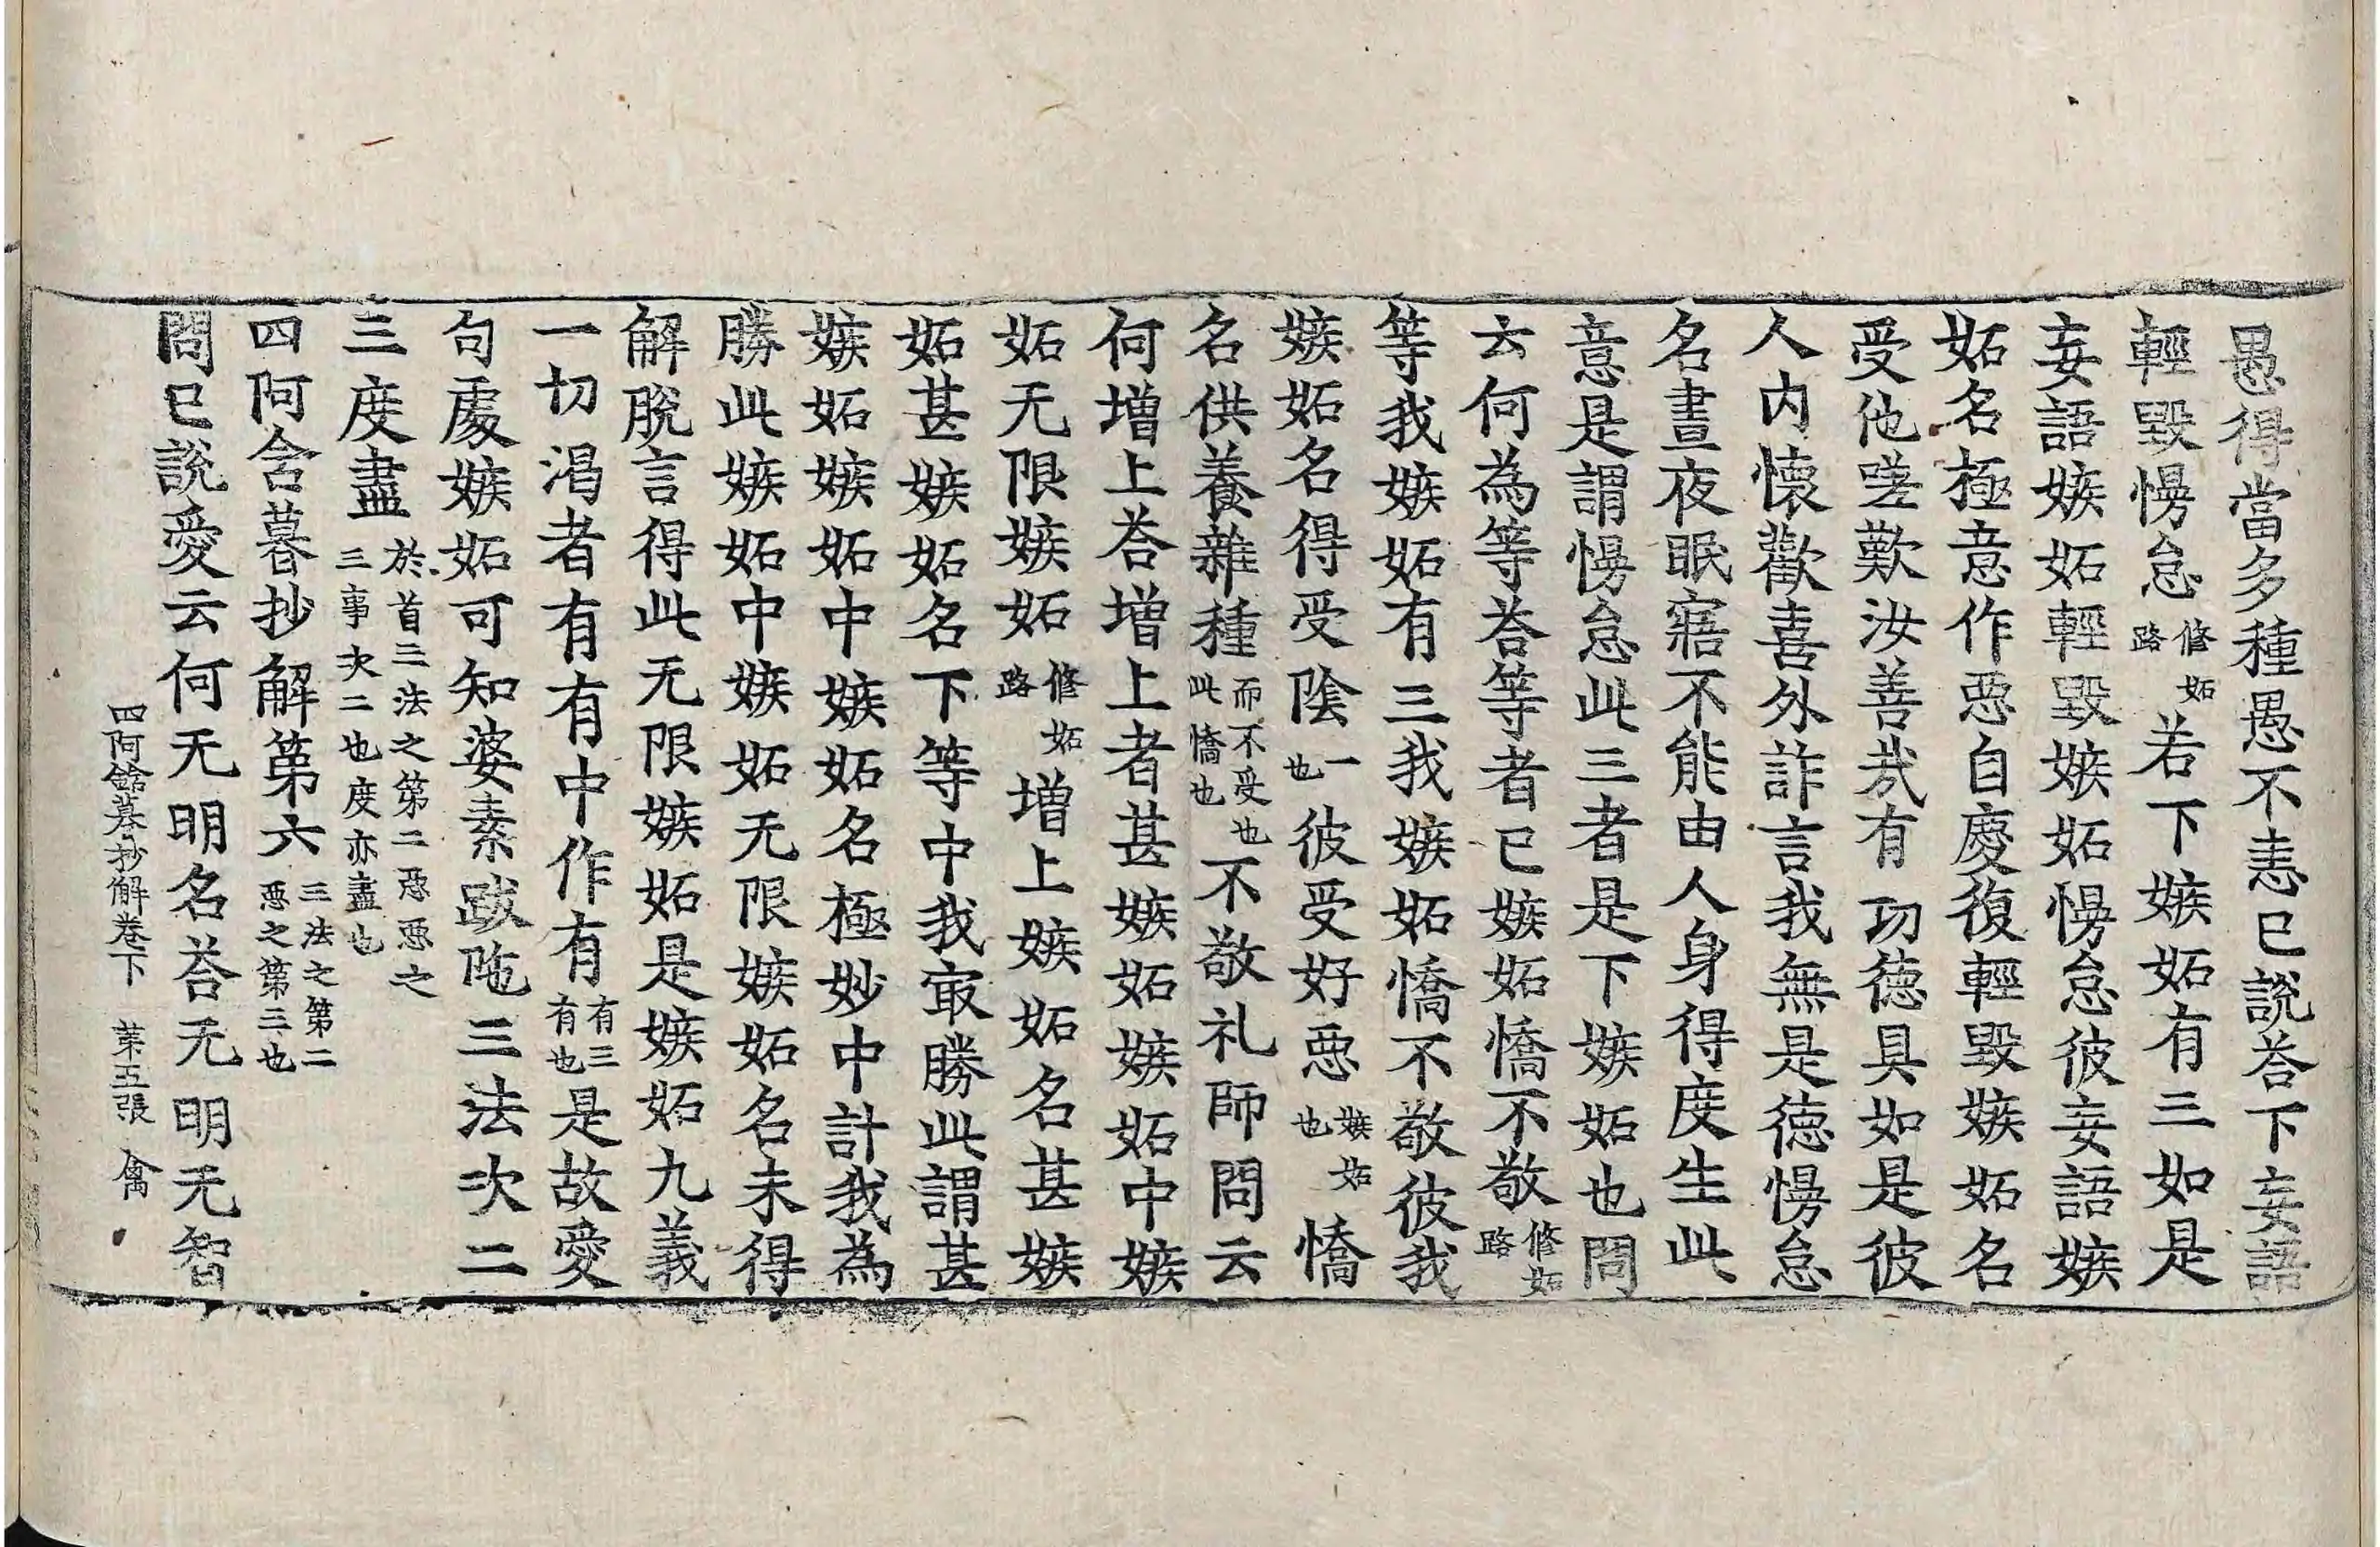 愚得當多種愚不恚已說荅下妄語
輕毀慢怠修妬路若下嫉妬有三如是
妄語嫉妬輕毀嫉妬慢怠彼妄語嫉
妬名極意作惡自慶復輕毀嫉妬名
受他嗟歎汝善哉有功德具如是彼
人内懷歡喜外詐言我無是德慢怠
名晝夜眠寤不能由人身得度生此
意是謂慢怠此三者是下嫉妬也問
云何為等荅等者已嫉妬憍不敬修妬路
等我嫉妬有三我嫉妬憍不敬彼我
嫉妬名得受陰一也彼受好惡嫉妬也憍
名供養雜種而不受也此憍也不敬礼師問云
何增上荅增上者甚嫉妬嫉妬中嫉
妬无限嫉妬修妬路增上嫉妬名甚嫉
妬甚嫉妬名下等中我㝡勝此謂甚
嫉妬嫉妬中嫉妬名極妙中計我為
勝此嫉妬中嫉妬无限嫉妬名未得
解脫言得此无限嫉妬是嫉妬九義
一切渴者有有中作有有三有也是故愛
句處嫉妬可知婆素跋陁三法次二
三度盡於首三法之第二惡惡之三事次二也度亦盡也
四阿含暮抄解第六三法之第二惡之第三也
問已說愛云何无明名荅无明无智
四阿鋡暮抄解卷下　苐五張　禽